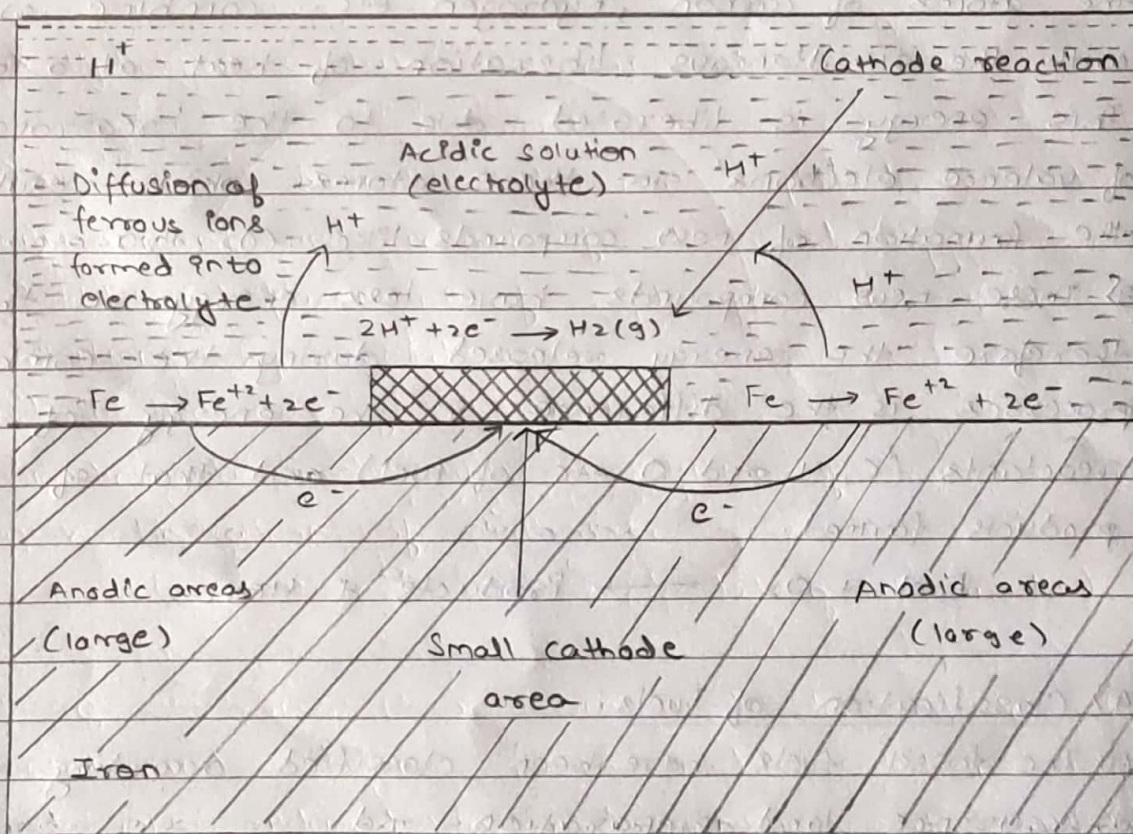 H⁺
Cathode reaction
Acidic solution
(electrolyte)
H⁺
Diffusion of
ferrous ions
formed into
electrolyte
H⁺
H⁺
2H⁺ + 2e⁻ → H2(g)
Fe → Fe⁺² + 2e⁻
Fe → Fe⁺² + 2e⁻
e⁻
e⁻
Anodic areas
(large)
Small cathode
area
Anodic areas
(large)
Iron